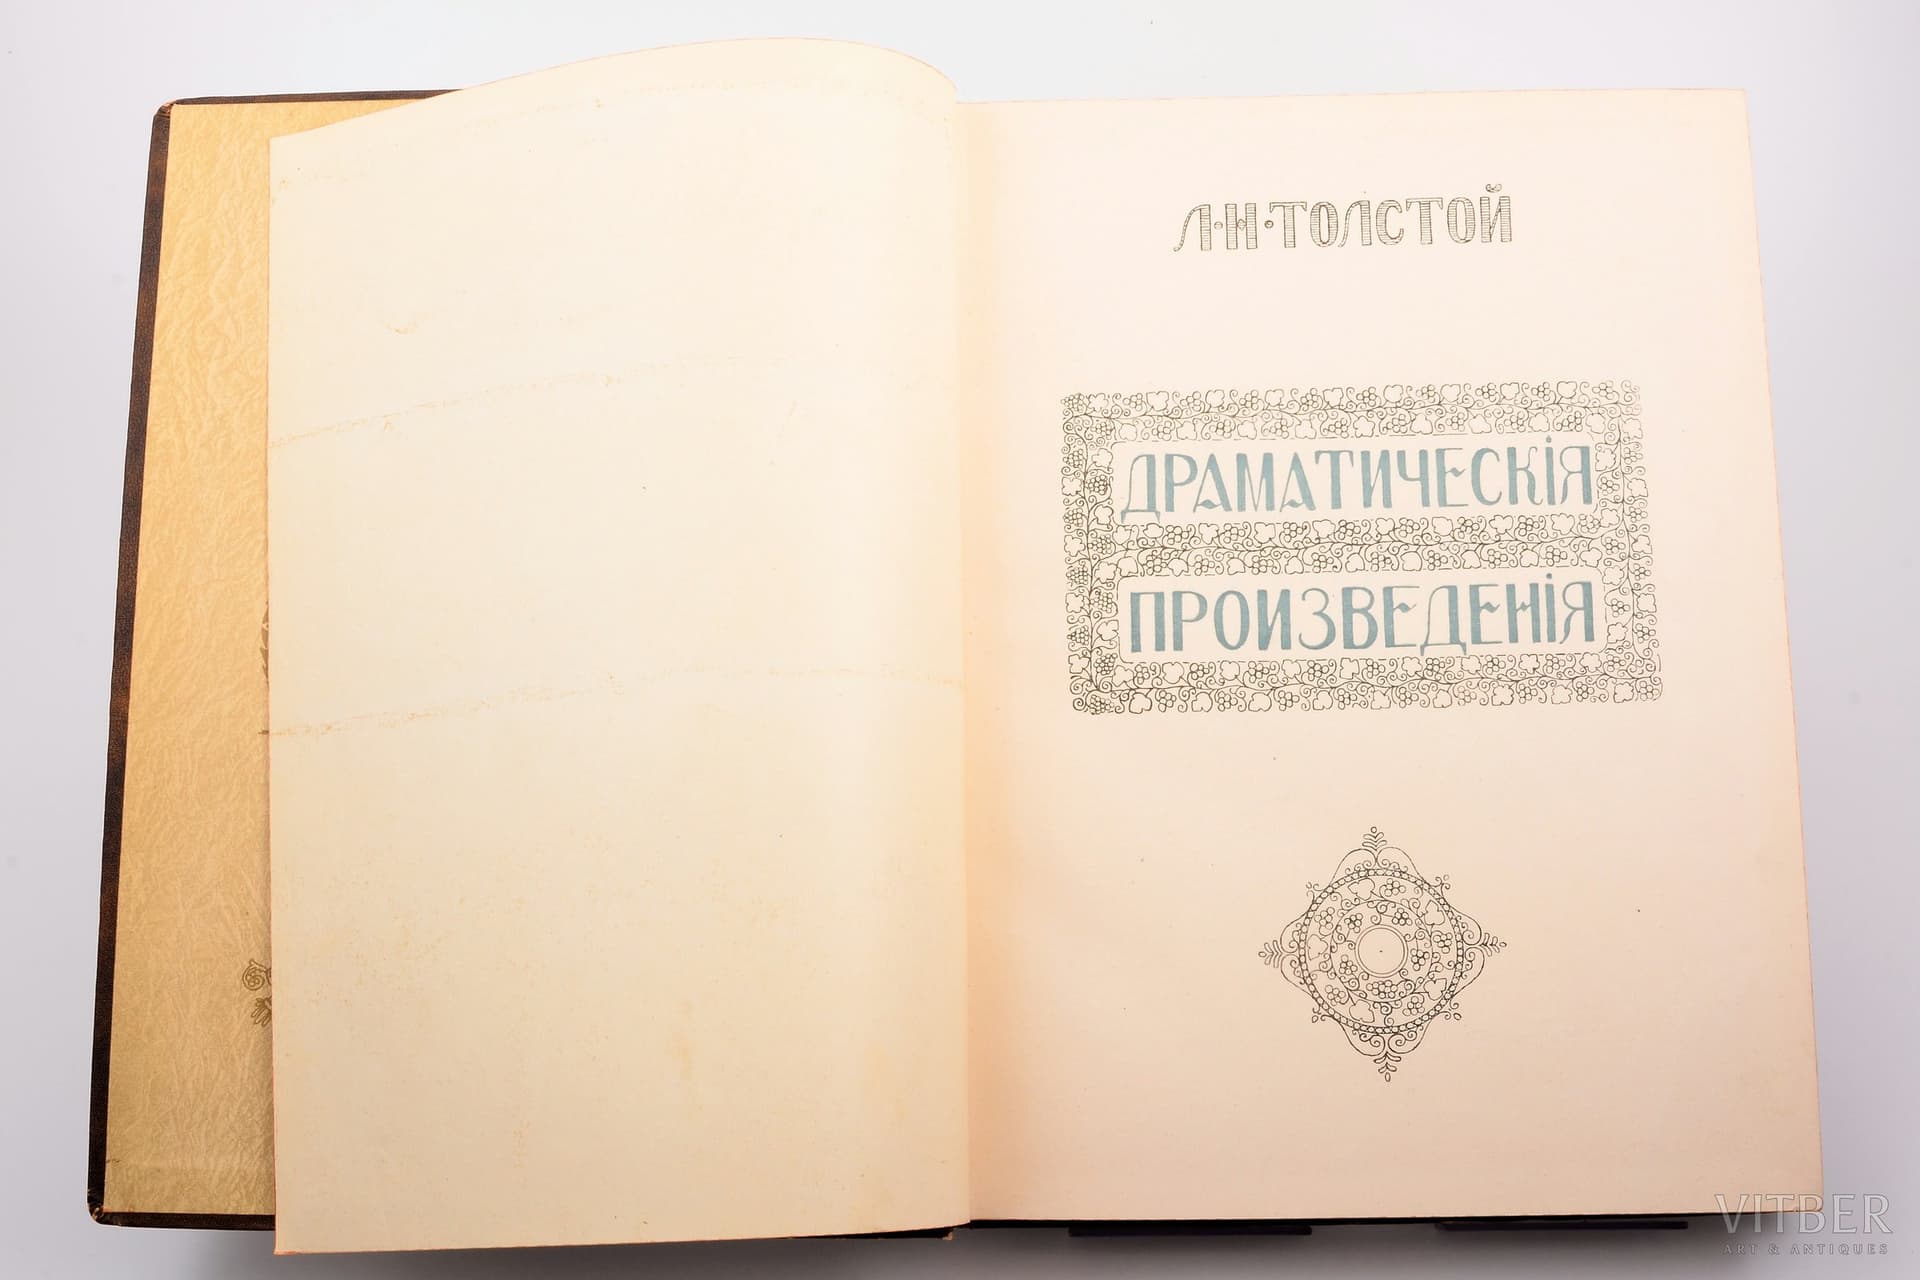 Л·Н·ТОЛСТОЙ
ДРАМАТИЧЕСКІЯ
ПРОИЗВЕДЕНІЯ
VITBER
ART & ANTIQUES